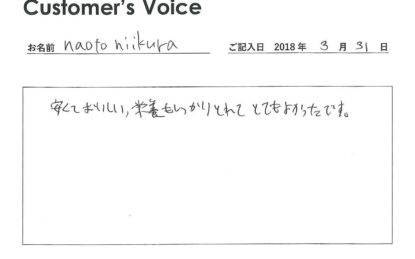 Customer's Voice
お名前 naoto niikura ご記入日 2018年 3月31日
安くておいしい,栄養もしっかりとれてとてもよかったです。